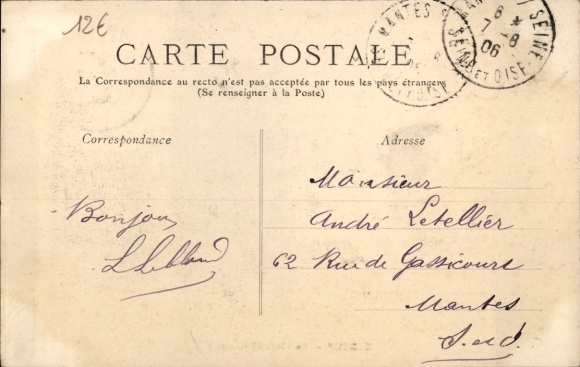 12€
MANTES S
SEINE ET OISE
8
7 -8
06
CARTE POSTALE
La Correspondance au recto n'est pas acceptée par tous les pays étrangers
(Se renseigner à la Poste)
Correspondance
Adresse
Bonjour
L Leblond
Monsieur
André Letellier
62 Rue de Gassicourt
Mantes
S. et O.